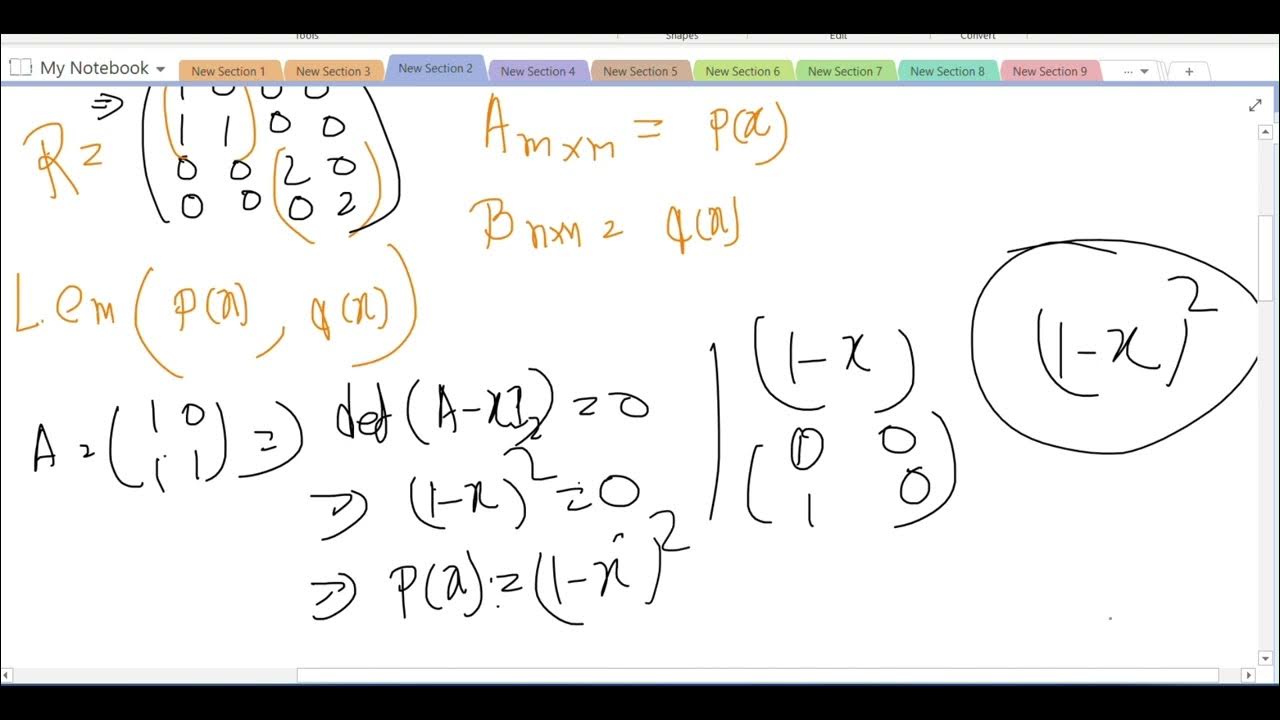 Tools Shapes Edit Convert
My Notebook New Section 1 New Section 3 New Section 2 New Section 4 New Section 5 New Section 6 New Section 7 New Section 8 New Section 9 ... +
⇒
R = ( 1 0 0 0
1 1 0 0
0 0 2 0
0 0 0 2 )
A m×m = P(x)
B n×n = q(x)
L.c.m ( P(x), q(x) )
A = ( 1 0
1 1 ) ⇒ det (A - xI₂) = 0
⇒ (1-x)² = 0
⇒ P(x) = (1-x)²
(1-x)
( 0 0
1 0 )
(1-x)²